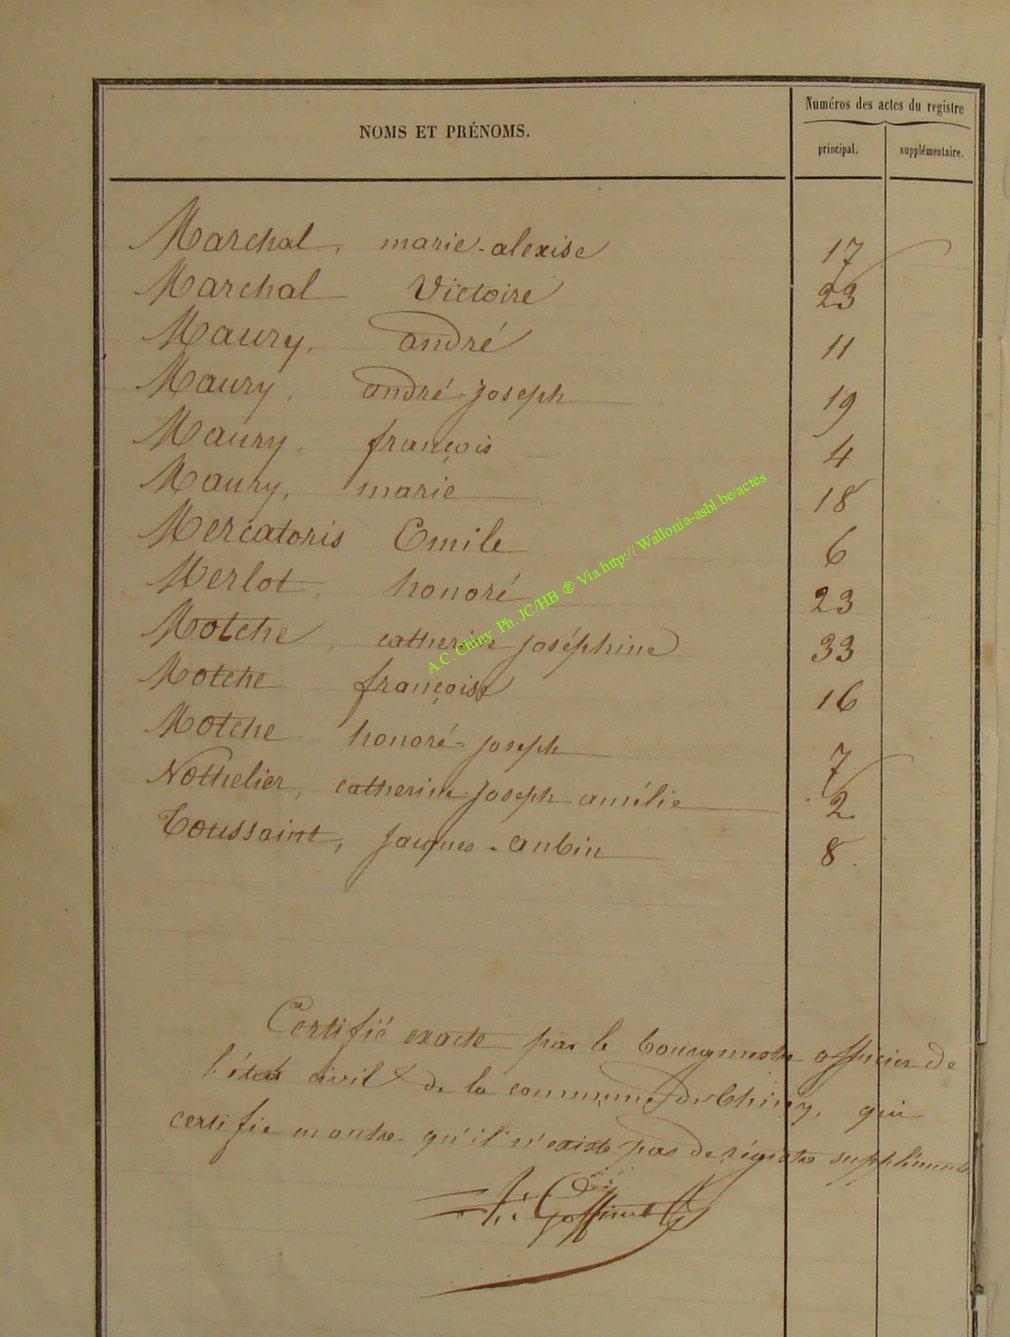 NOMS ET PRÉNOMS.
Numéros des actes du registre
principal.
supplémentaire.
Marchal, marie-alexise 17
Marchal Victoire 23
Maury, andré 11
Maury, andré-joseph 19
Maury, françois 4
Maury, marie 18
Mercatoris Emile 6
Merlot, honoré 23
Motche, catherine joséphine 33
Motche françoise 16
Motche honoré-joseph 7
Nothelier, catherine joseph amélie 2
Toussaint, jacques-aubin 8
Certifié exacte par le bourgmestre officier de
l'état civil de la commune de Chiny, qui
certifie en outre qu'il n'existe pas de régistre supplément
Goffinet
A.C. Chiny Ph. JC/HB ® Via http://Wallonia-asbl.be/actes